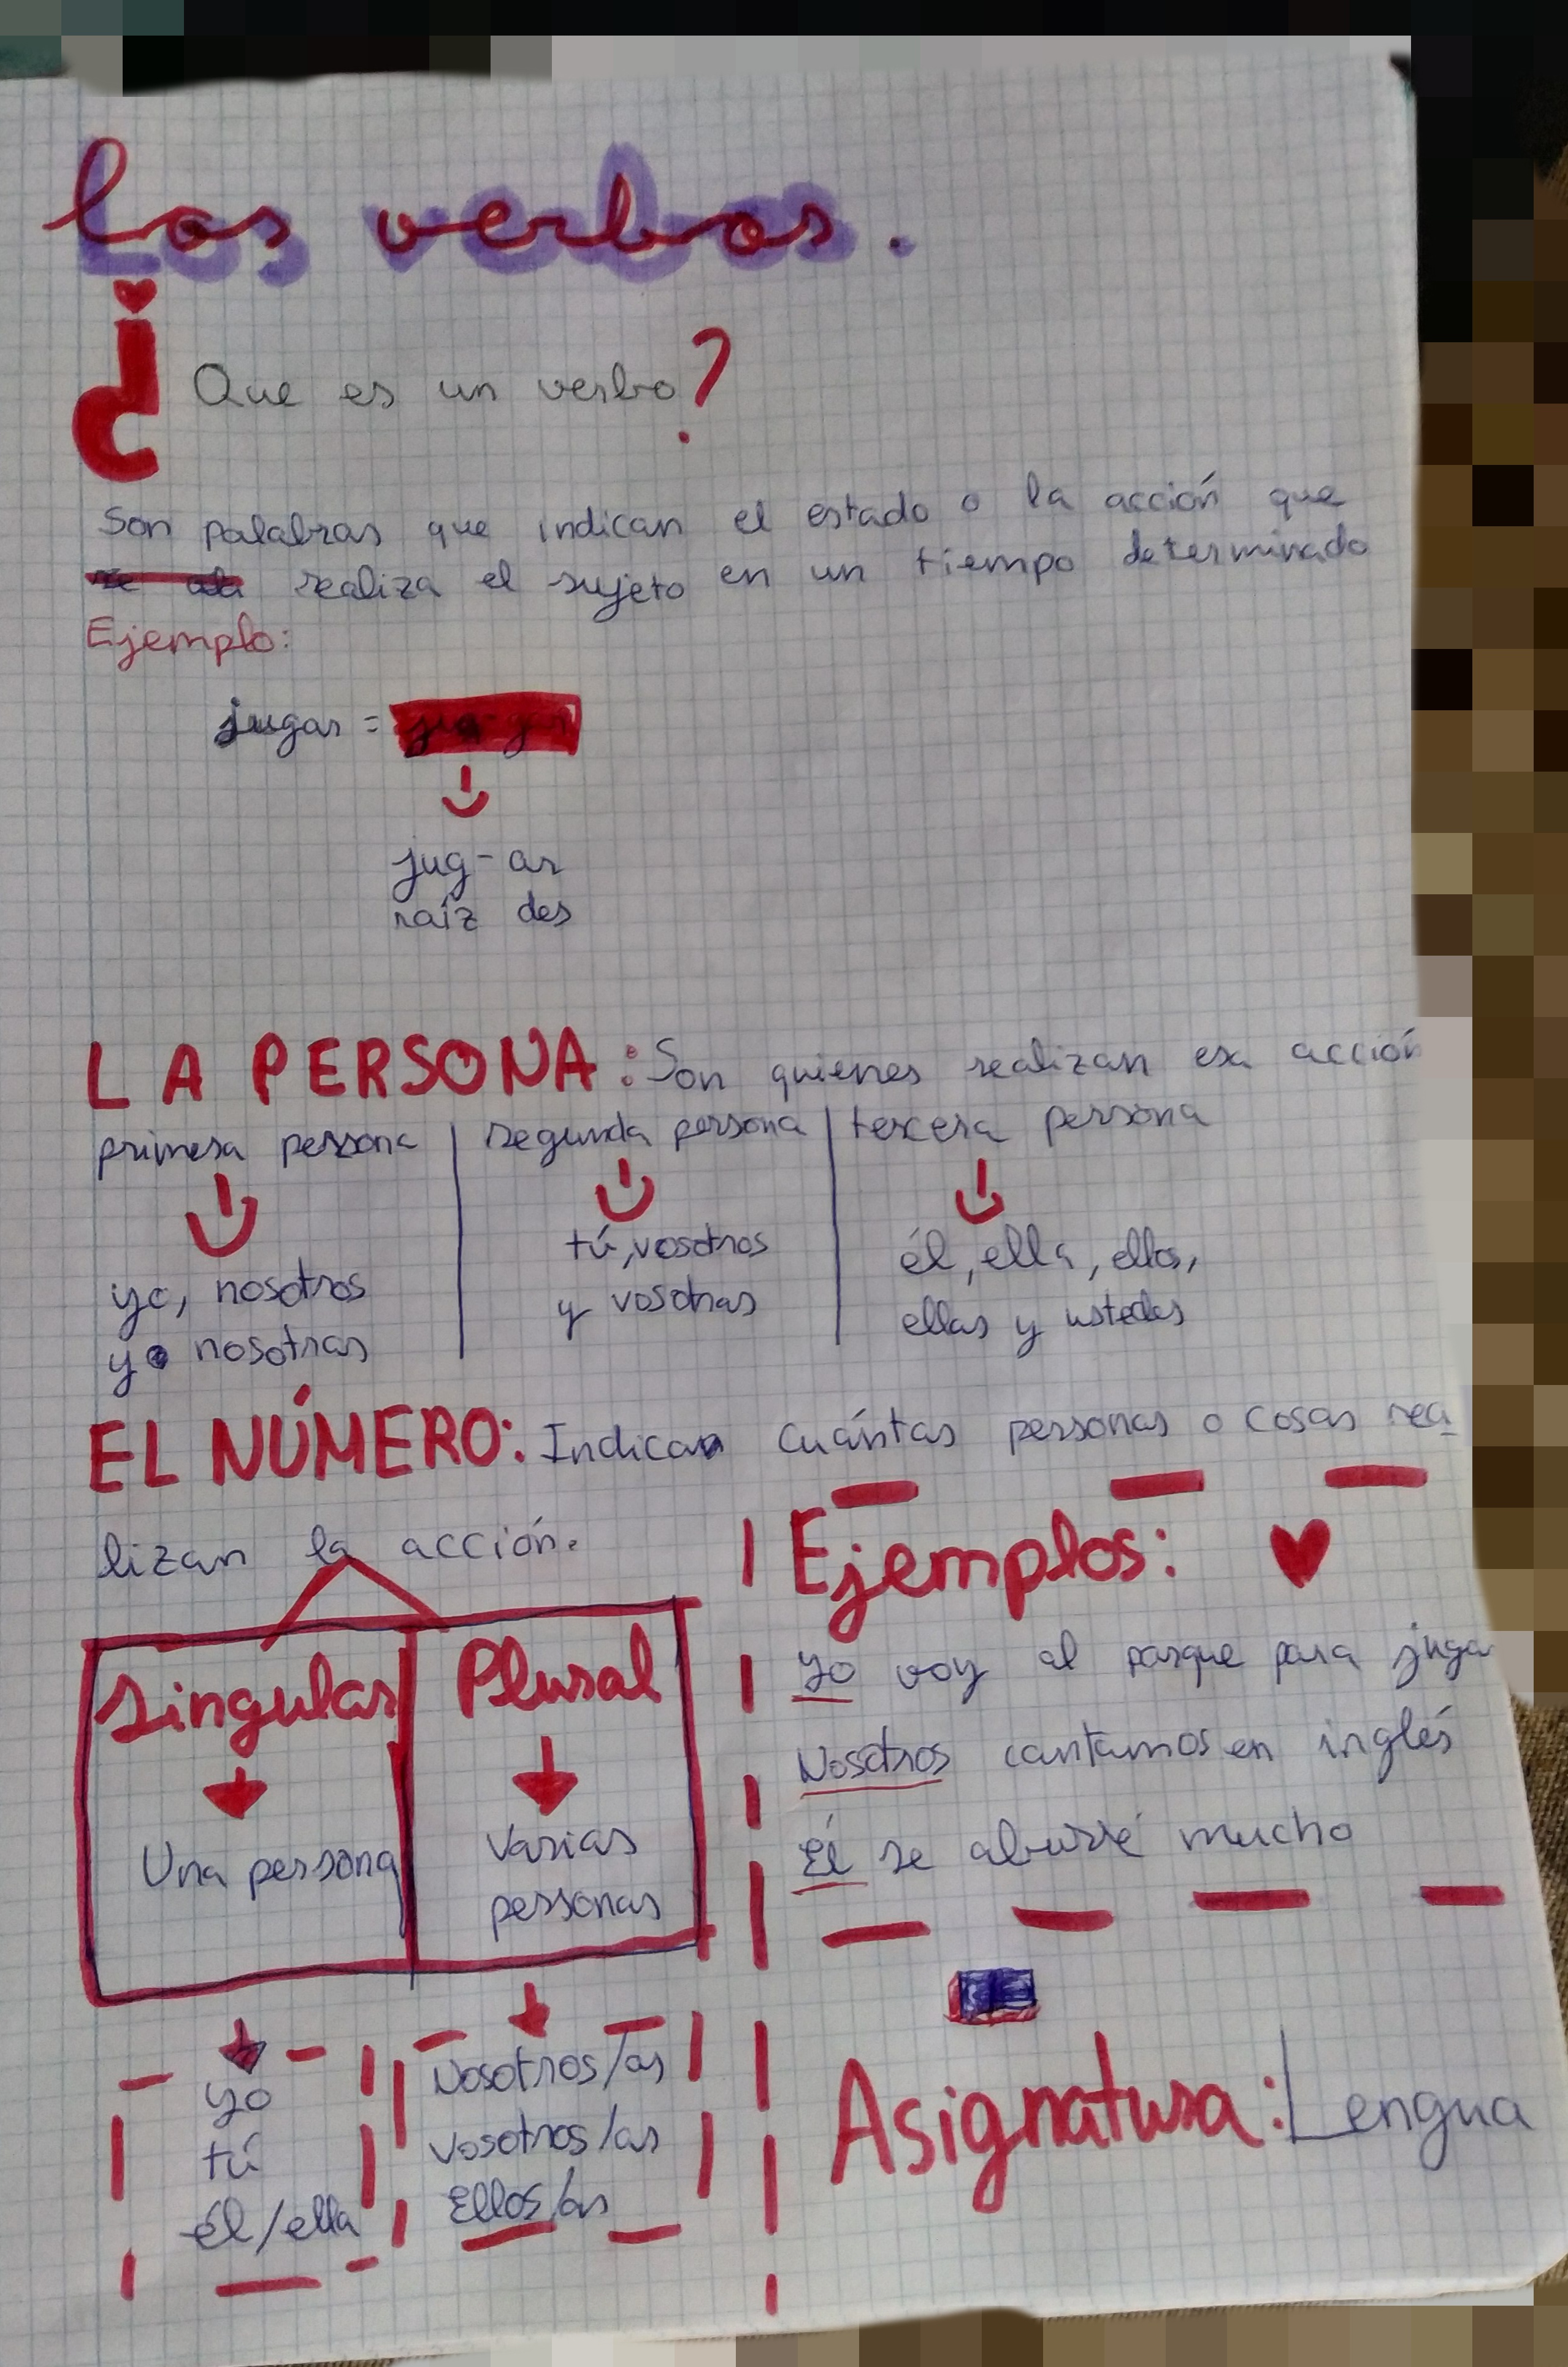 Los verbos.
¿Que es un verbo?
Son palabras que indican el estado o la acción que
realiza el sujeto en un tiempo determinado
Ejemplo:
jugar =
jug-ar
raíz des
LA PERSONA: Son quienes realizan esa acción
primera persona
yo, nosotros
y nosotras
segunda persona
tú, vosotros
y vosotras
tercera persona
él, ella, ellos,
ellas y ustedes
EL NÚMERO: Indican cuántas personas o cosas rea
lizan la acción.
Singular
Una persona
yo
tú
él/ella
Plural
Varias
personas
Nosotros/as
Vosotros/as
Ellos/as
Ejemplos:
Yo voy al parque para juga
Nosotros cantamos en inglés
Él se aburré mucho
Asignatura: Lengua